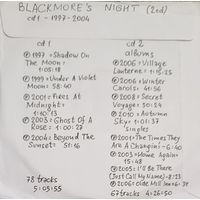 BLACKMORE'S NIGHT (2cd)
cd1 - 1997-2004
cd1
℗ 1997 = Shadow On
The Moon:
1:05:18
℗ 1999 = Under A Violet
Moon: 58:40
℗ 2001 = Fires At
Midnight:
1:10:13
℗ 2003 = Ghost Of A
Rose: 1:00:27
℗ 2004 = Beyond The
Sunset: 51:16
78 tracks
5:05:55
cd2
albums
℗ 2006 = Village
Lanterne: 1:15:25
℗ 2006 = Winter
Carols: 41:56
℗ 2008 = Secret
Voyage: 50:24
℗ 2010 = Autumn
Sky: 1:01:37
Singles
℗ 2001 = The Times They
Are A Changin' = 6:40
℗ 2003 = Home Again
15:48
℗ 2005 = I'll Be There
(Just Call My Name) = 8:23
℗ 2006 = Olde Mill Inn = 6:37
67 tracks 4:26:50